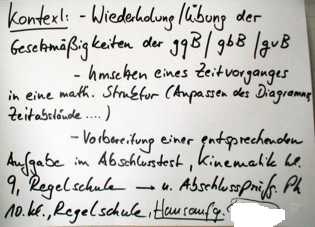 Kontext: - Wiederholung/Übung der
Gesetzmäßigkeiten der ggB/gbB/gvB
- Umsetzen eines Zeitvorganges
in eine math. Struktur (Anpassen des Diagramms,
Zeitabstände ....)
- Vorbereitung einer entsprechenden
Aufgabe im Abschlusstest, Kinematik kl.
9, Regelschule → u. Abschlussprüfg. Ph
10. kl., Regelschule, Hausaufg.